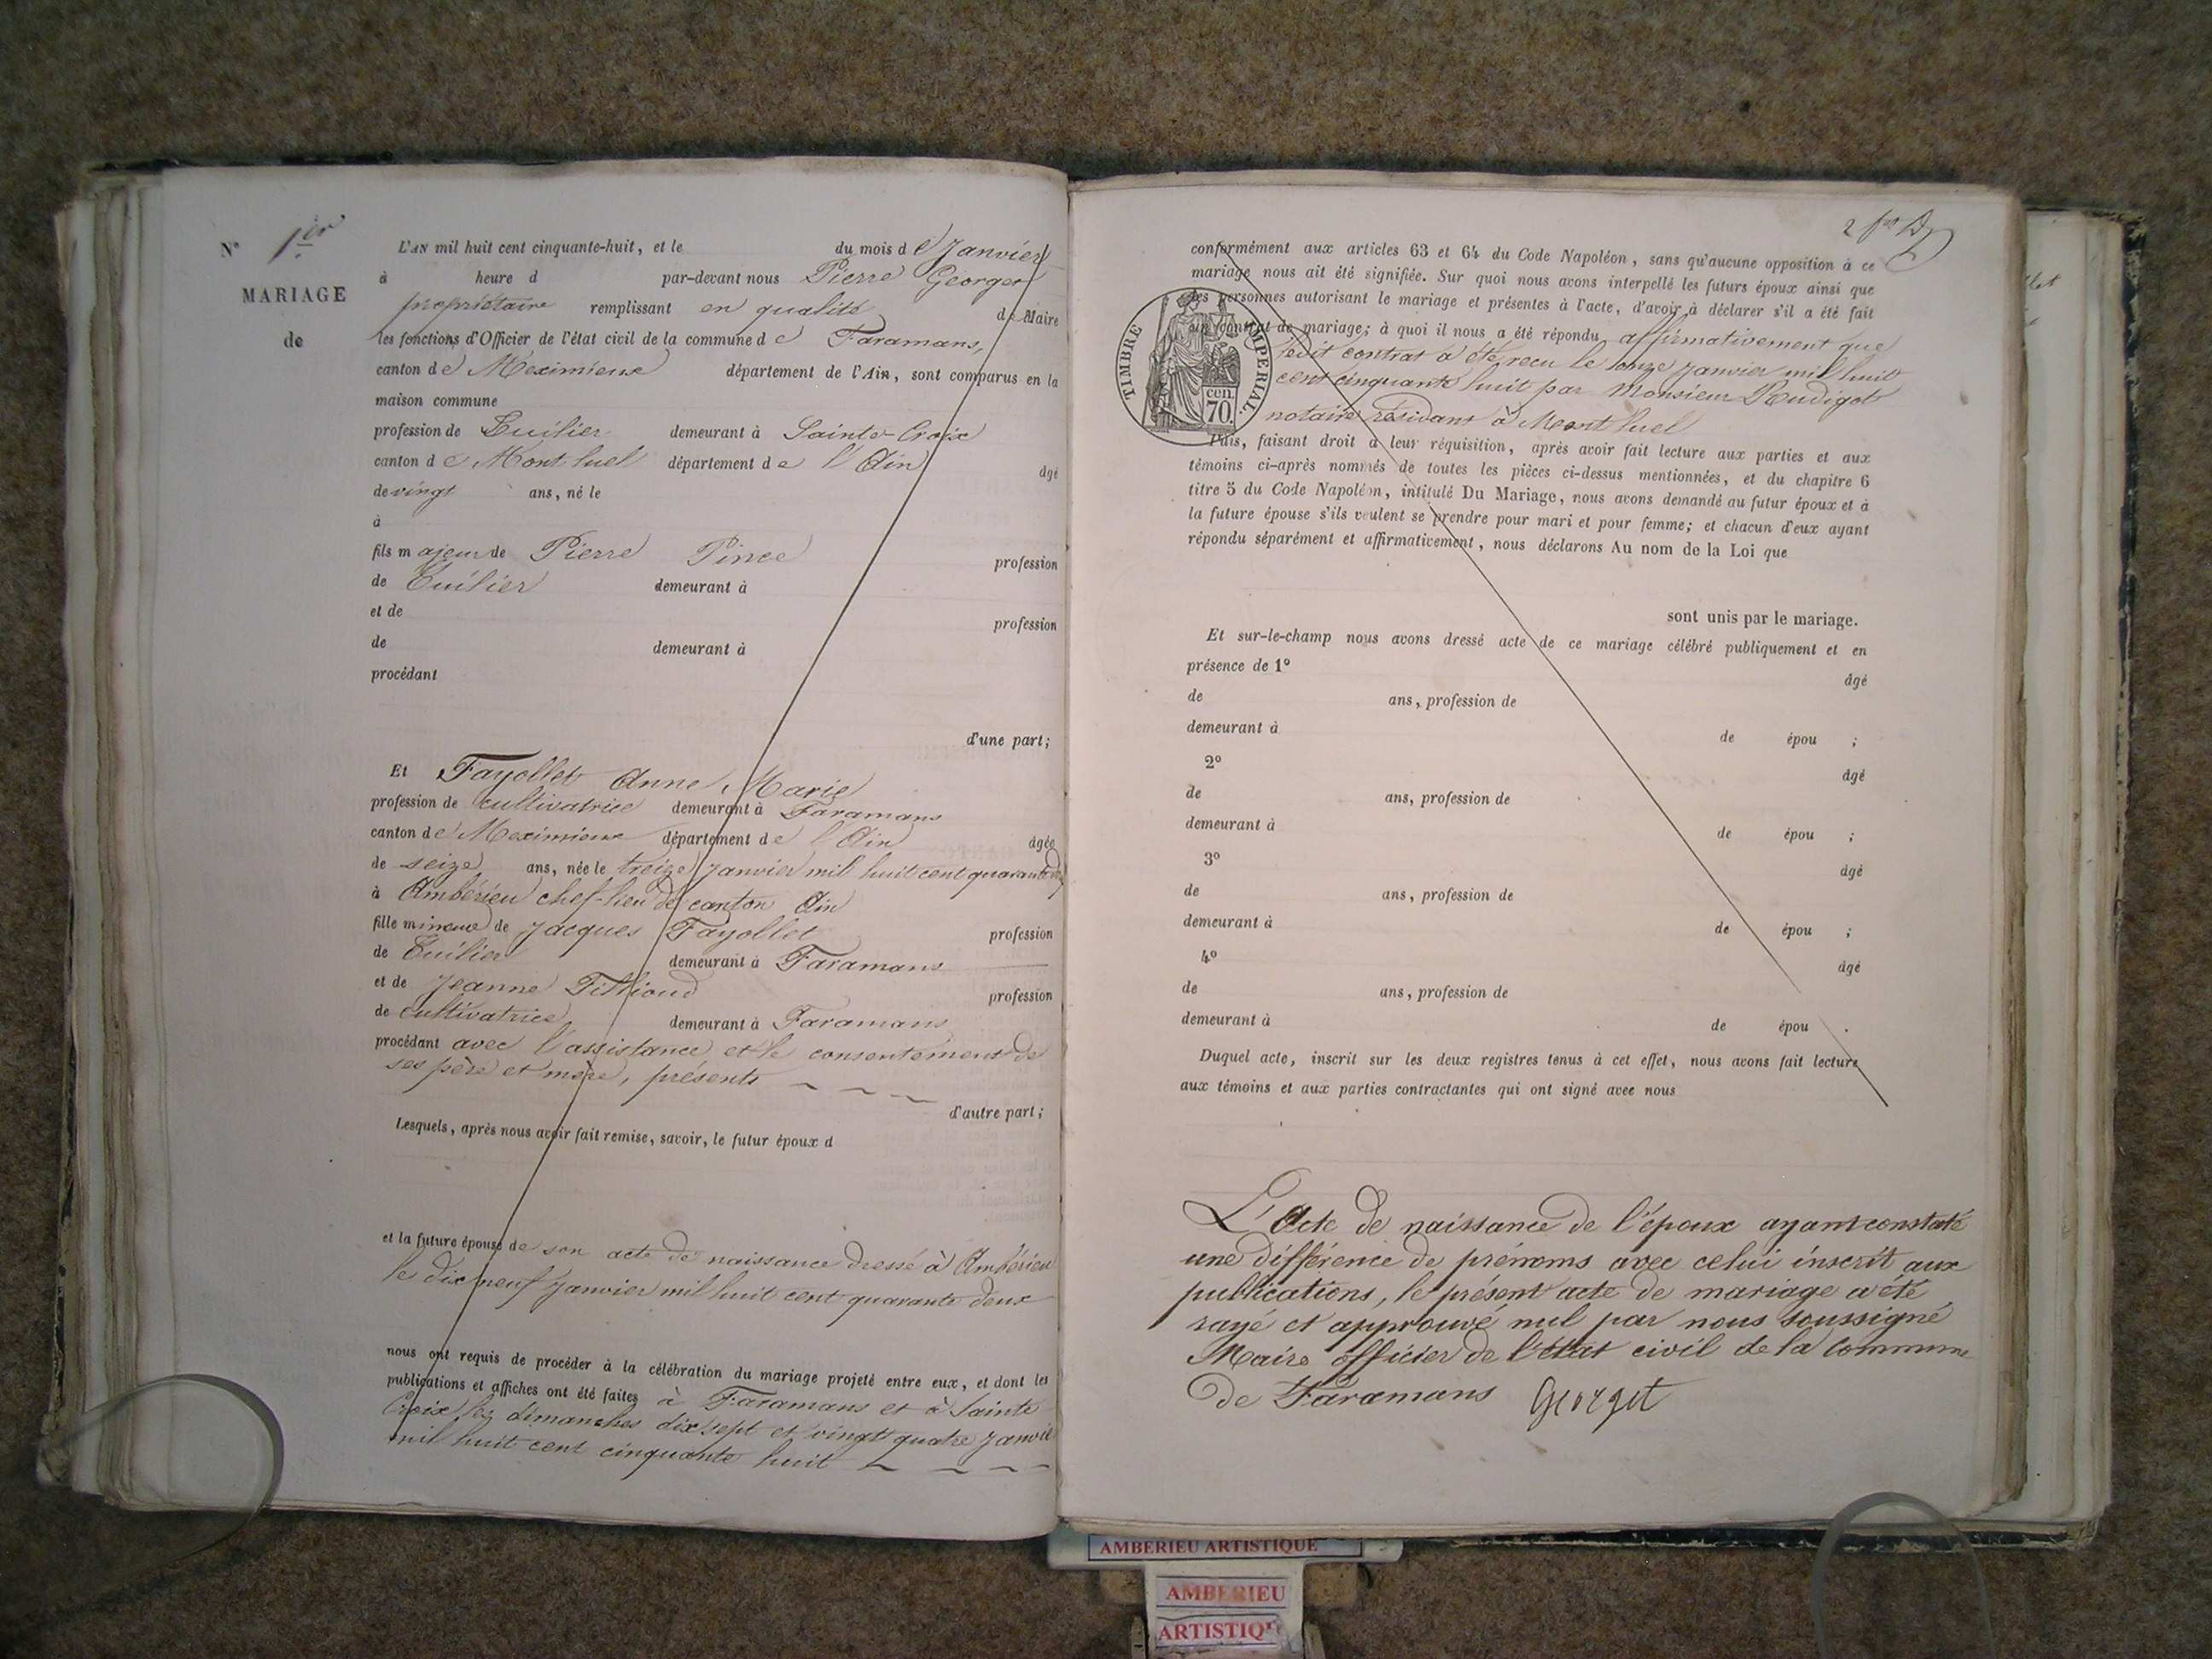 N° 1er
MARIAGE
de
L'AN mil huit cent cinquante-huit, et le du mois de Janvier
à heure d par-devant nous Pierre Georget
propriétaire remplissant en qualité de Maire
les fonctions d'Officier de l'état civil de la commune de Faramans,
canton de Meximieux département de l'Ain, sont comparus en la
maison commune
profession de Tuilier demeurant à Sainte-Croix
canton de Mont luel département de l'Ain âgé
de vingt ans, né le
à
fils majeur de Pierre Pince profession
de Tuilier demeurant à
et de profession
de demeurant à
procédant
d'une part;
Et Fayollet Anne Marie
profession de cultivatrice demeurant à Faramans
canton de Meximieux département de l'Ain âgée
de seize ans, née le treize janvier mil huit cent quarante deux
à Ambérieu chef-lieu de canton Ain
fille mineure de Jacques Fayollet profession
de Tuilier demeurant à Faramans
et de Jeanne profession
de cultivatrice demeurant à Faramans
procédant avec l'assistance et le consentement de
ses père et mère, présents
d'autre part;
Lesquels, après nous avoir fait remise, savoir, le futur époux d
et la future épouse de son acte de naissance dressé à Ambérieu
le dix neuf janvier mil huit cent quarante deux
nous ont requis de procéder à la célébration du mariage projeté entre eux, et dont les
publications et affiches ont été faites à Faramans et à Sainte
Croix les dimanches dix sept et vingt quatre janvier
mil huit cent cinquante huit
conformément aux articles 63 et 64 du Code Napoléon, sans qu'aucune opposition à ce
mariage nous ait été signifiée. Sur quoi nous avons interpellé les futurs époux ainsi que
les personnes autorisant le mariage et présentes à l'acte, d'avoir à déclarer s'il a été fait
un contrat de mariage; à quoi il nous a été répondu affirmativement que
ledit contrat a été reçu le onze janvier mil huit
cent cinquante huit par Monsieur Rudigot
notaire résidant à Mont luel
TIMBRE IMPERIAL.
cen. 70.
Puis, faisant droit à leur réquisition, après avoir fait lecture aux parties et aux
témoins ci-après nommés de toutes les pièces ci-dessus mentionnées, et du chapitre 6
titre 5 du Code Napoléon, intitulé Du Mariage, nous avons demandé au futur époux et à
la future épouse s'ils veulent se prendre pour mari et pour femme; et chacun d'eux ayant
répondu séparément et affirmativement, nous déclarons Au nom de la Loi que
sont unis par le mariage.
Et sur-le-champ nous avons dressé acte de ce mariage célébré publiquement et en
présence de 1° âgé
de ans, profession de
demeurant à de épou ;
2° âgé
de ans, profession de
demeurant à de épou ;
3° âgé
de ans, profession de
demeurant à de épou ;
4° âgé
de ans, profession de
demeurant à de épou .
Duquel acte, inscrit sur les deux registres tenus à cet effet, nous avons fait lecture
aux témoins et aux parties contractantes qui ont signé avec nous
L'Acte de naissance de l'époux ayant constaté
une différence de prénoms avec celui inscrit aux
publications, le présent acte de mariage a été
rayé et approuvé nul par nous soussigné
Maire officier de l'état civil de la commune
de Faramans Georget
AMBERIEU ARTISTIQUE
AMBERIEU
ARTISTIQ